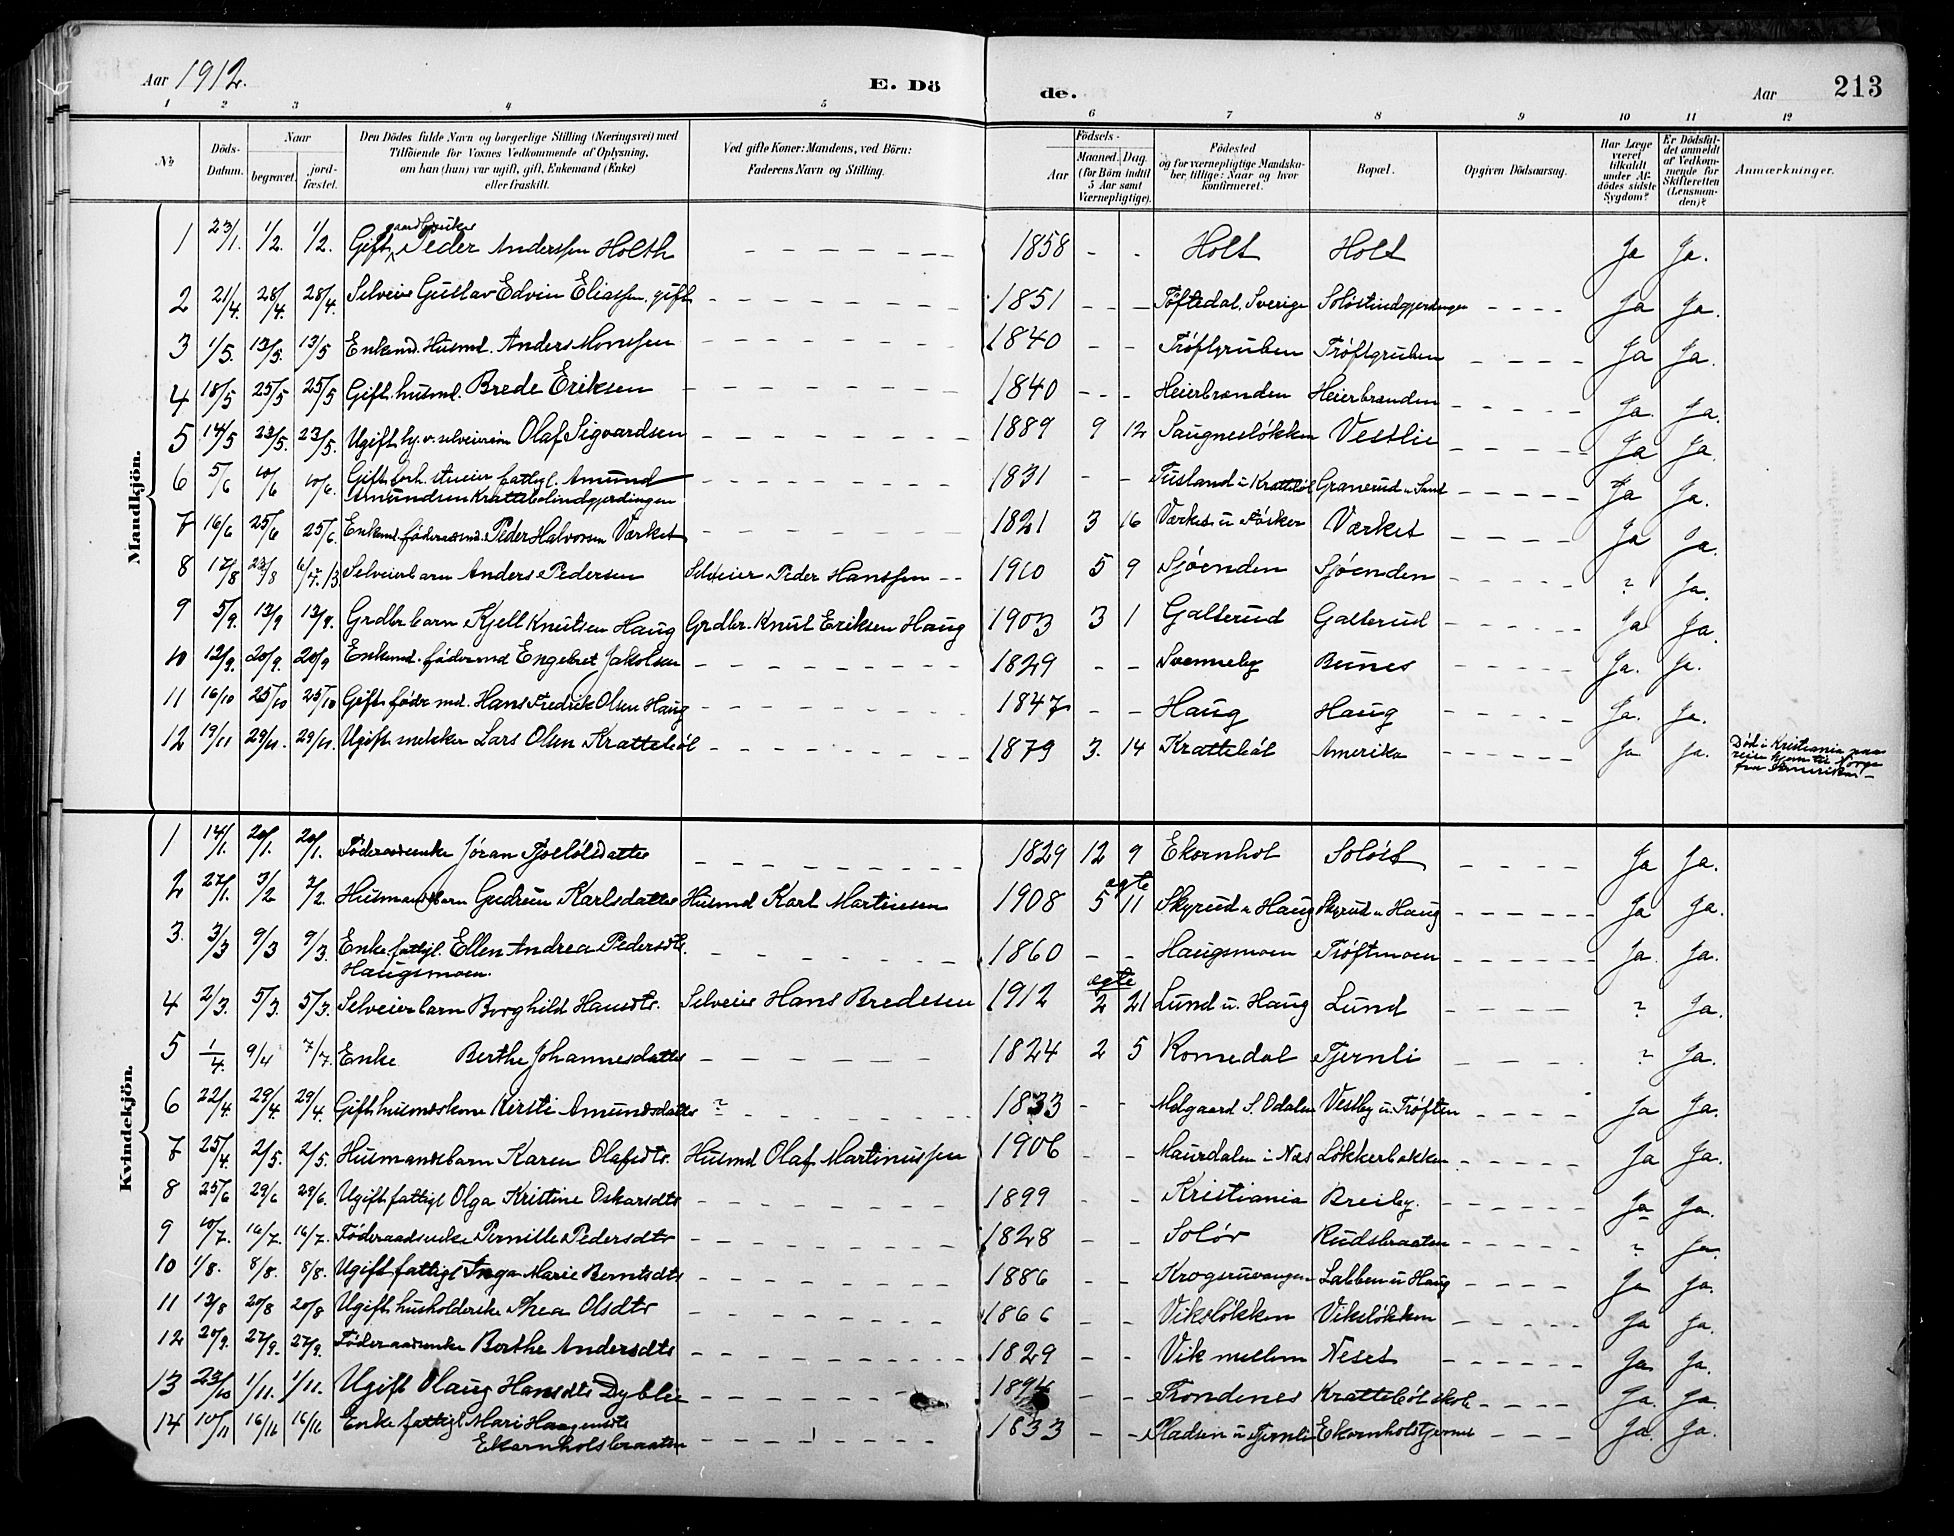 Aar 1912. E. Dö de. Aar 213
1 2 3 4 5 6 7 8 9 10 11 12
No
Döds-Datum.
Naar
begravet. jord-fæstet.
Den Dödes fulde Navn og borgerlige Stilling (Næringsvei) med
Tilföiende for Voxnes Vedkommende af Oplysning,
om han (hun) var ugift, gift, Enkemand (Enke)
eller fraskilt.
Ved gifte Koner: Mandens, ved Börn:
Faderens Navn og Stilling.
Födsels-
Aar Maaned. Dag.
(for Börn indtil
5 Aar samt
Værnepligtige).
Födested
og for værnepligtige Mandska-
ber, tillige: Naar og hvor
konfirmeret.
Bopæl.
Opgiven Dödsaarsag.
Har Læge
været
tilkaldt
under Af-
dödes sidste
Sygdom?
Er Dödsfal-
det anmeldt
af Vedkom-
mende for
Skifteretten
(Lensman-
den)?
Anmærkninger.
Mandkjön.
1 23/1. 1/2. 1/2. Gift gaardbruker Peder Anderssen Holth - - - - - - 1858 - - Holt Holt Ja Ja.
2 21/4. 28/4. 28/4. Selveier Gustav Edvin Eliassen, gift - - - - - - 1851 - - Töftedal, Sverige Soløstindgjerdingen - - - - Ja Ja.
3 1/5. 13/5. 13/5 Enkemd. Husmd. Anders Monssen - - - - - - 1840 - - Trøftgruben Trøftgruben - - - - Ja Ja.
4 18/5 25/5 25/5 Gift husmd. Brede Eriksen - - - - - - 1840 - - Heierbrænden Heierbrænden - - - - Ja. Ja.
5 14/5 23/5. 23/5. Ugift hj. v. selveiersøn Olaf Sigvardsen - - - - - - 1889 9 12 Saugnesløkken Vestlie - - - - Ja Ja.
6 5/6 10/6 10/6. Gift forh. selveier fattigl. Amund
Amundsen Krattebølindgjerdingen - - - - - - 1831 - - Tusland u. Krattebøl Granerud u. Sand - - - - Ja Ja.
7 16/6 25/6 25/6. Enkemd. föderaadsmd. Peder Halvorsen Værket - - - - - - 1821 3 16 Værket u. Fosker Værket - - - - Ja Ja.
8 17/8 23/8 Selveierbarn Anders Pedersen Selveier Peder Hanssen - - 1910 5 9 Sjøenden Sjøenden - - - - ? Ja.
9 5/9. 13/9 13/9. Grdbr. barn Kjell Knutsen Haug Grdbr. Knut Eriksen Haug 1903 3 1 Galterud Galterud - - - - Ja Ja.
10 12/9. 20/9. 20/9 Enkemd. födermd Engebret Jakobsen - - - - - - 1829 - - Svenneby Bunes - - - - Ja. Ja.
11 16/10 25/10 25/10 Gift födermd. Hans Fredrik Olsen Haug - - - - - - 1847 - - Haug Haug - - - - Ja. Ja.
12 19/11 29/11. 29/11. Ugift snekker Lars Olsen Krattebøl - - - - - - 1879 3. 14 Krattebøl Amerika - - - - Ja Ja. Död i Kristiania paa
reise hjem til Norge
fra Amerika -
Kvindekjön.
1 14/1. 20/1. 20/1. Föderaadsenke Jøran Tjostolsdatter - - - - - - 1829 12 9 Ekornhol Soløst - - - - Ja Ja.
2 27/1. 3/2 3/2. Husmandsbarn Gudrun Karlsdatter Husmd Karl Martinsen 1908 5 ægte 11 Skyrud u Haug Skyrud u Haug - - - - Ja Ja.
3. 3/3 9/3 9/3. Enke fattigl. Ellen Andrea Pedersdtr.
Haugsmoen. - - - - - - 1860 - - Haugsmoen Trøftmoen - - - - Ja. Ja.
4 2/3. 5/3. 5/3. Selveierbarn Borghild Hansdtr. Selveier Hans Bredesen 1912 ægte 2 21 Lund u. Haug Lund - - - - ? Ja.
5 1/4. 9/4 7/7. Enke Berthe Johannesdatter - - - - - - 1824 2 5 Romedal Tjernli ? Ja.
6 22/4. 29/4. 29/4. Gift husmandskone Kirsti Amundsdatter ? - - - - - 1833 - - Melgaard S. Odalen Vestby u. Trøften Ja Ja.
7 25/4. 2/5. 2/5. Husmandsbarn Karen Olafsdtr. Husmd Olaf Martinussen 1906 - - Maurdalen i Nes Løkkerbakken - - - - Ja Ja.
8 25/6 29/6 29/6. Ugift fattigl Olga Kristine Oskarsdtr - - - - - - 1899 - - Kristiania Breiby. - - - - Ja Ja.
9 10/7. 16/7. 16/7. Föderaadsenke Pernille Pedersdtr - - - - - - 1828 - - Solör Rudsbraaten - - - - ? Ja.
10 1/8. 8/8. 8/8. Ugift fattigl Inga Marie Berntsdtr - - - - - - 1886 - - Krogsruvangen Labben u Haug - - - - Ja Ja.
11 13/8 20/8 20/8 Ugift husholderske Thea Olsdtr - - - - - - 1866 - - Viksløkken Viksløkken - - - - Ja Ja.
12 20/9. 27/9. 27/9. Föderaadsenke Berthe Andersdtr - - - - - - 1829 - - Vik mellem Neset - - - - Ja Ja.
13 23/10 1/11. 1/11. Ugift Olaug Hansdtr Dyblie - - - - - - 1894 - - Trondenes Krattebøl skole - - - - Ja. Ja.
14 10/11 16/11 16/11 Enke fattigl Mari Haagensdtr
Ekornholsbraaten - - - - - - 1833 - - Pladsen u Tjernli Ekornholstjernet - - - Ja. Ja.